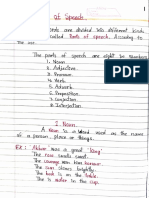 1
of Speech
are divided into different kinds
called Parts of speech, According to
the use.
The parts of speech are eight in
1. Noun
2. Adjective
3. Pronoun
4. Verb
5. Adverb
6. Preposition
7. Conjuction
8. Interjection
1. Noun
A Noun is a word used as the name
of a person, place or things.
EX: Akbar was a great king
The rose smells sweet.
The courage won him honour.
The sun shines brightly.
The book is on the table.
The is water in the cup.